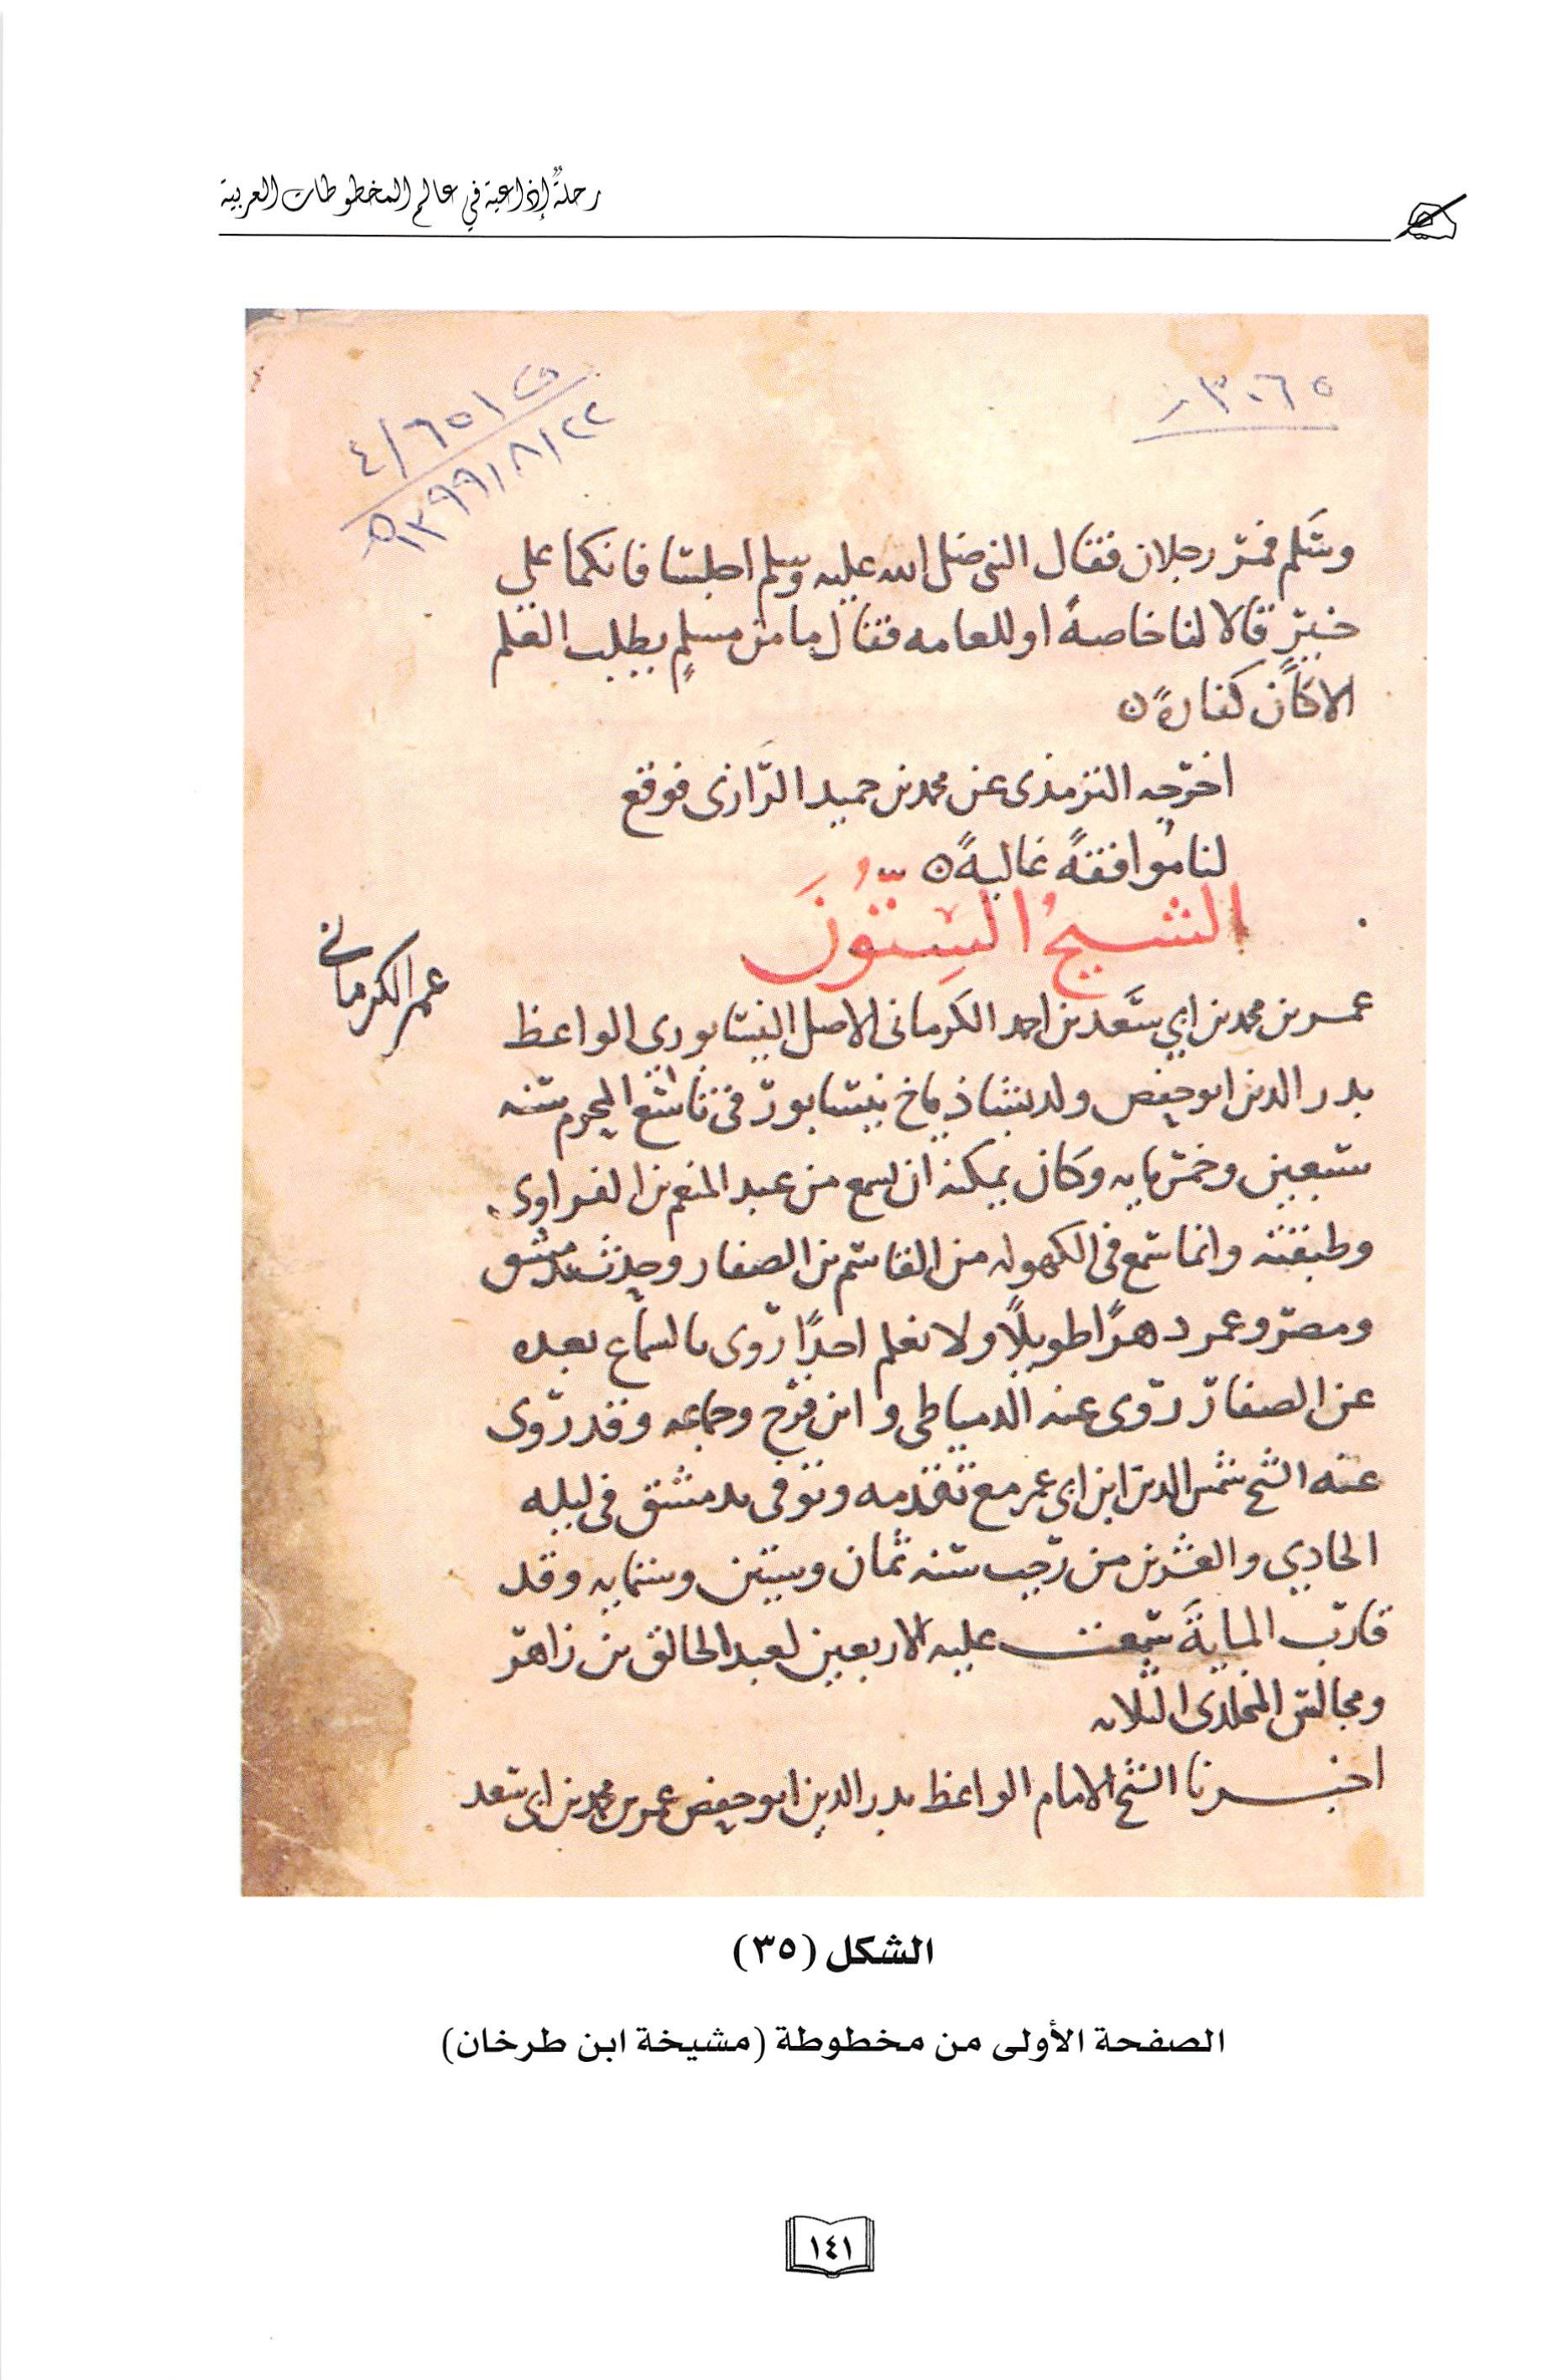 رحلةٌ إذاعية في عالم المخطوطات العربية
٣٠٦٥
ف ٦٥١/٤
١٣٩٩/٨/٢٢هـ
وسلم فمر رجلان فقال النبى صلى الله عليه وسلم اجلسا فانكما على
خير قالا لنا خاصةً او للعامه فقال ما من مسلمٍ يطلب العلم
الا كان كفارةً ه
اخرجه الترمذى عن محمد بن حميد الرازى فوقع
لنا موافقةً عاليةً ه
الشيخُ السِتّونَ
عمر الكرمانى
عمر بن محمد بن ابي سعد بن احمد الكرمانى الاصل النيسابوري الواعظ
بدر الدين ابو حفص ولد بشاذياخ نيسابور فى تاسع المحرم سنه
سبعين وخمس مايه وكان يمكنه ان يسمع من عبد المنعم بن الفراوى
وطبقته وانما سمع فى الكهوله من القاسم بن الصفار وحدث بدمشق
ومصر وعمر دهرًا طويلًا ولا نعلم احدًا روى بالسماع بعده
عن الصفار روى عنه الدمياطى وابن فرح وجماعه وقد روى
عنه الشيخ شمس الدين ابن ابى عمر مع تقدمه وتوفى بدمشق فى ليله
الحادي والعشرين من رجب سنه ثمان وستين وستمايه وقد
قارب المايةَ سمعت عليه الاربعين لعبد الخالق بن زاهر
ومجالس المخلدى الثلاثه
اخبرنا الشيخ الامام الواعظ بدر الدين ابو حفص عمر بن محمد بن ابى سعد
الشكل (٣٥)
الصفحة الأولى من مخطوطة (مشيخة ابن طرخان)
١٤١